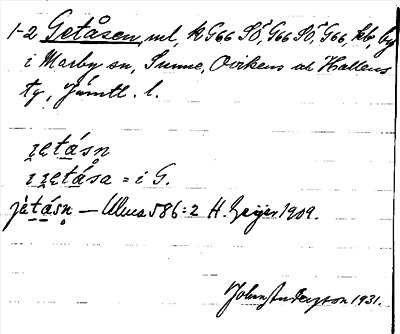 1-2 Getåsen, ml, k G66 SÖ, G66 SÖ, G66, hb, by
i Marby sn, Sunne, Ovikens ol Hallens
tg, Jämtl. l.
ɪetásn̥
i ɪetása = i G.
játásn̥ — Ulma 586:2 H. Geijer 1909.
John Andersson 1931.